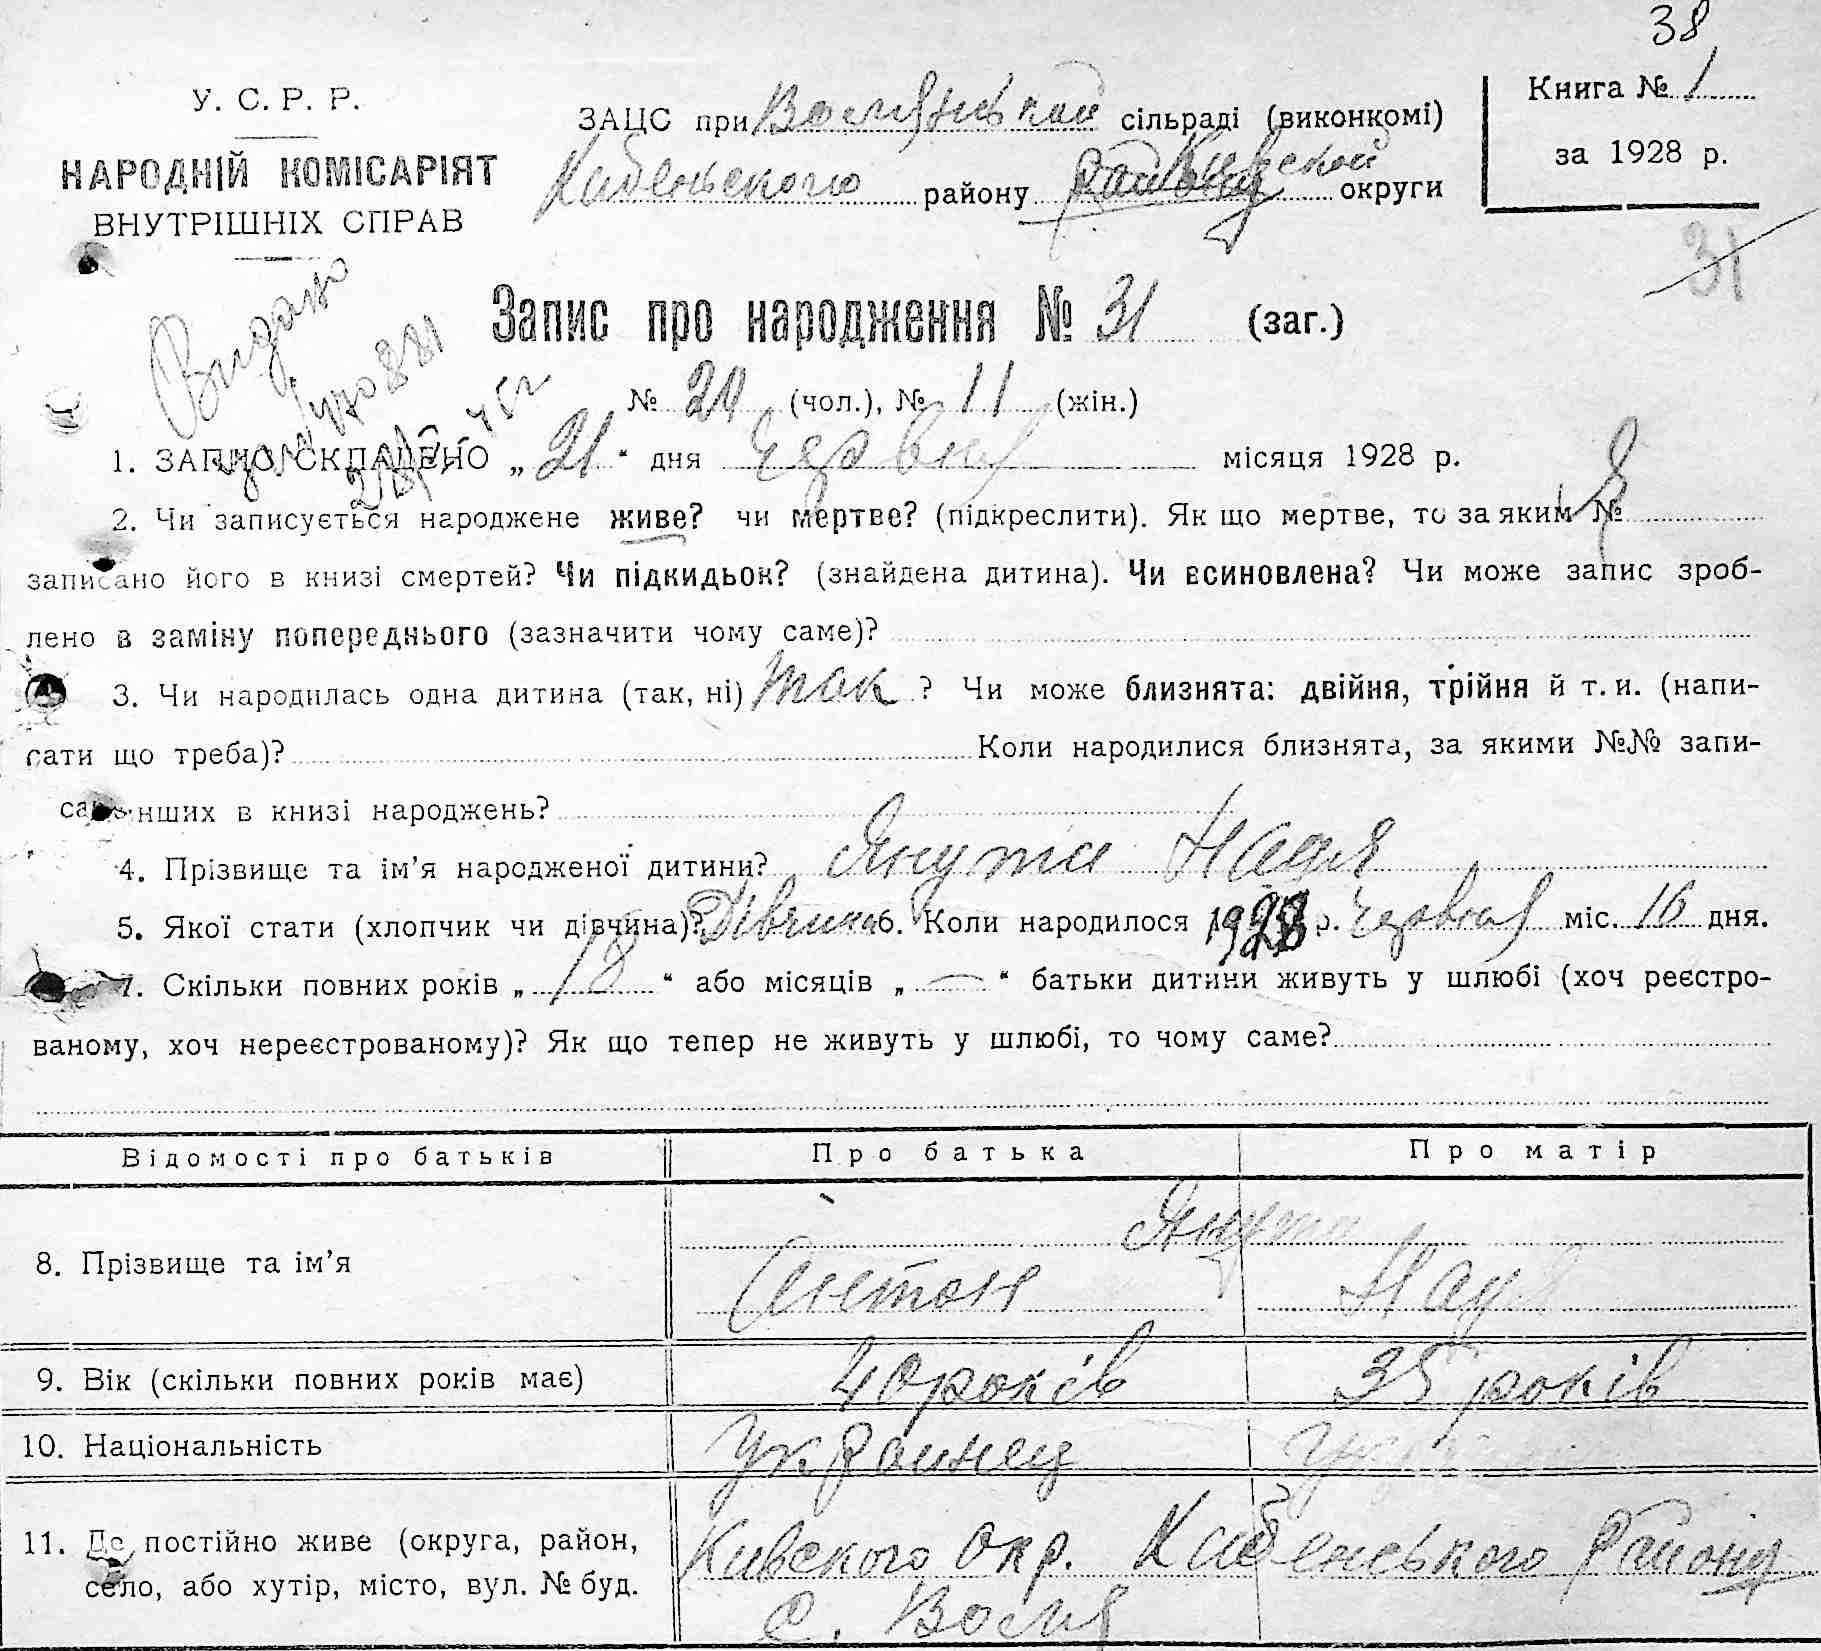 38
У. С. Р. Р.
НАРОДНІЙ КОМІСАРІЯТ
ВНУТРІШНІХ СПРАВ
ЗАЦС при Воли́нській сільраді (виконкомі)
району Киевской округи
Книга № 1
за 1928 р.
31
Видано
Запис про народження № 31 (заг.)
№ 20 (чол.), № 11 (жін.)
1. ЗАПИС СКЛАДЕНО „21“ дня Червня місяця 1928 р.
2. Чи записується народжене живе? чи мертве? (підкреслити). Як що мертве, то за яким №
записано його в книзі смертей? Чи підкидьок? (знайдена дитина). Чи всиновлена? Чи може запис зроб-
лено в заміну попереднього (зазначити чому саме)?
3. Чи народилась одна дитина (так, ні) так ? Чи може близнята: двійня, трійня й т. и. (напи-
сати що треба)? Коли народилися близнята, за якими №№ запи-
нших в книзі народжень?
4. Прізвище та ім’я народженої дитини? Янута Надя
5. Якої стати (хлопчик чи дівчина)? Дівчина 6. Коли народилося 1928 р. Червня міс. 16 дня.
7. Скільки повних років „ 18 “ або місяців „ — “ батьки дитини живуть у шлюбі (хоч реєстро-
ваному, хоч нереєстрованому)? Як що тепер не живуть у шлюбі, то чому саме?
Відомості про батьків Про батька Про матір
Янута
8. Прізвище та ім’я Антон
9. Вік (скільки повних років має) 40 років 35 років
10. Національність Украинец
11. Де постійно живе (округа, район, Кивского Окр. Району
село, або хутір, місто, вул. № буд. с.